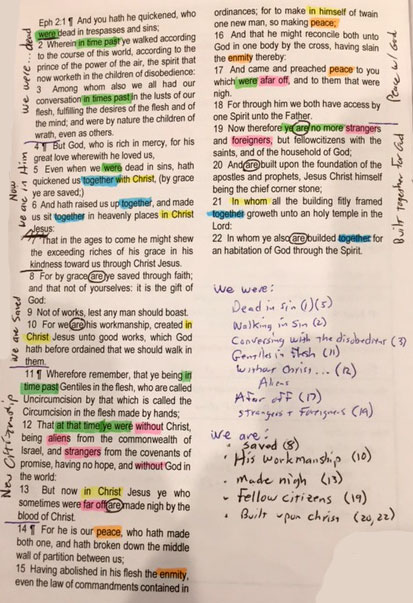 Eph 2:1 ¶ And you hath he quickened, who
were dead in trespasses and sins;
2 Wherein in time past ye walked according
to the course of this world, according to the
prince of the power of the air, the spirit that
now worketh in the children of disobedience:
3 Among whom also we all had our
conversation in times past in the lusts of our
flesh, fulfilling the desires of the flesh and of
the mind; and were by nature the children of
wrath, even as others.
4 ¶ But God, who is rich in mercy, for his
great love wherewith he loved us,
5 Even when we were dead in sins, hath
quickened us together with Christ, (by grace
ye are saved;)
6 And hath raised us up together, and made
us sit together in heavenly places in Christ
Jesus:
7 That in the ages to come he might shew
the exceeding riches of his grace in his
kindness toward us through Christ Jesus.
8 For by grace are ye saved through faith;
and that not of yourselves: it is the gift of
God:
9 Not of works, lest any man should boast.
10 For we are his workmanship, created in
Christ Jesus unto good works, which God
hath before ordained that we should walk in
them.
11 ¶ Wherefore remember, that ye being in
time past Gentiles in the flesh, who are called
Uncircumcision by that which is called the
Circumcision in the flesh made by hands;
12 That at that time ye were without Christ,
being aliens from the commonwealth of
Israel, and strangers from the covenants of
promise, having no hope, and without God in
the world:
13 But now in Christ Jesus ye who
sometimes were far off are made nigh by the
blood of Christ.
14 ¶ For he is our peace, who hath made
both one, and hath broken down the middle
wall of partition between us;
15 Having abolished in his flesh the enmity,
even the law of commandments contained in
we were... dead
Now
we are in Him
we are Saved
New Citizenship
ordinances; for to make in himself of twain
one new man, so making peace;
16 And that he might reconcile both unto
God in one body by the cross, having slain
the enmity thereby:
17 And came and preached peace to you
which were afar off, and to them that were
nigh.
18 For through him we both have access by
one Spirit unto the Father.
19 Now therefore ye are no more strangers
and foreigners, but fellowcitizens with the
saints, and of the household of God;
20 And are built upon the foundation of the
apostles and prophets, Jesus Christ himself
being the chief corner stone;
21 In whom all the building fitly framed
together groweth unto an holy temple in the
Lord:
22 In whom ye also are builded together for
an habitation of God through the Spirit.
Peace w/ God
Built Together For God
we were:
Dead in sin (1)(5)
Walking in Sin (2)
Conversing with the disobedient (3)
Gentiles in flesh (11)
without Christ... (12)
Aliens
Afar off (17)
strangers + Foreigners (19)
we are:
• Saved (8)
• His workmanship (10)
• made nigh (13)
• Fellow citizens (19)
• Built upon christ (20,22)